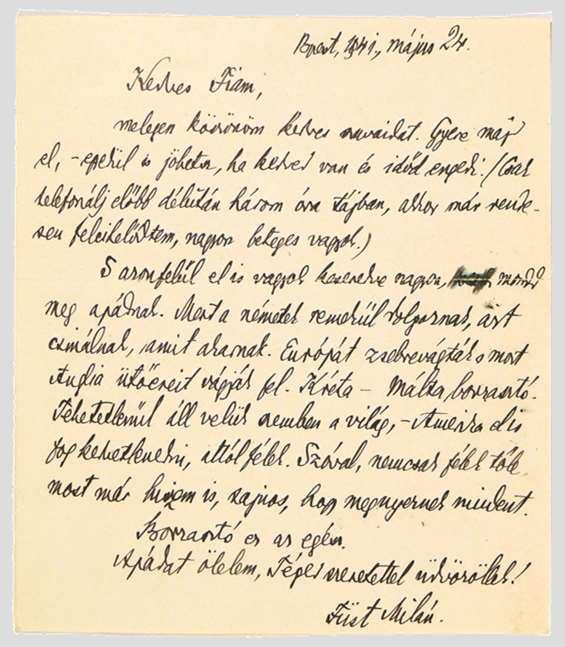 Bpest, 1941., május 24.
Kedves Fiam,
melegen köszönöm kedves szavaidat. Gyere már
el, – egyedül is jöhetsz, ha kedved van és időd engedi. (Csak
telefonálj előbb délután három óra tájban, akkor már rende-
sen felcihelődtem, nagyon beteges vagyok.)
S azonfelül el is vagyok keseredve nagyon, mondd
meg apádnak. Mert a németek remekül dolgoznak, azt
csinálnak, amit akarnak. Európát zsebrevágták s most
Anglia ütőereit vágják fel. Kréta – Málta, borzasztó.
Tehetetlenül áll velük szemben a világ, – Amerika el is
fog kedvetlenedni, attól félek. Szóval, nemcsak félek tőle
most már hiszem is, sajnos, hogy megnyernek mindent.
Borzasztó ez az egész.
Apádat ölelem, Téged szeretettel üdvözöllek!
Füst Milán.